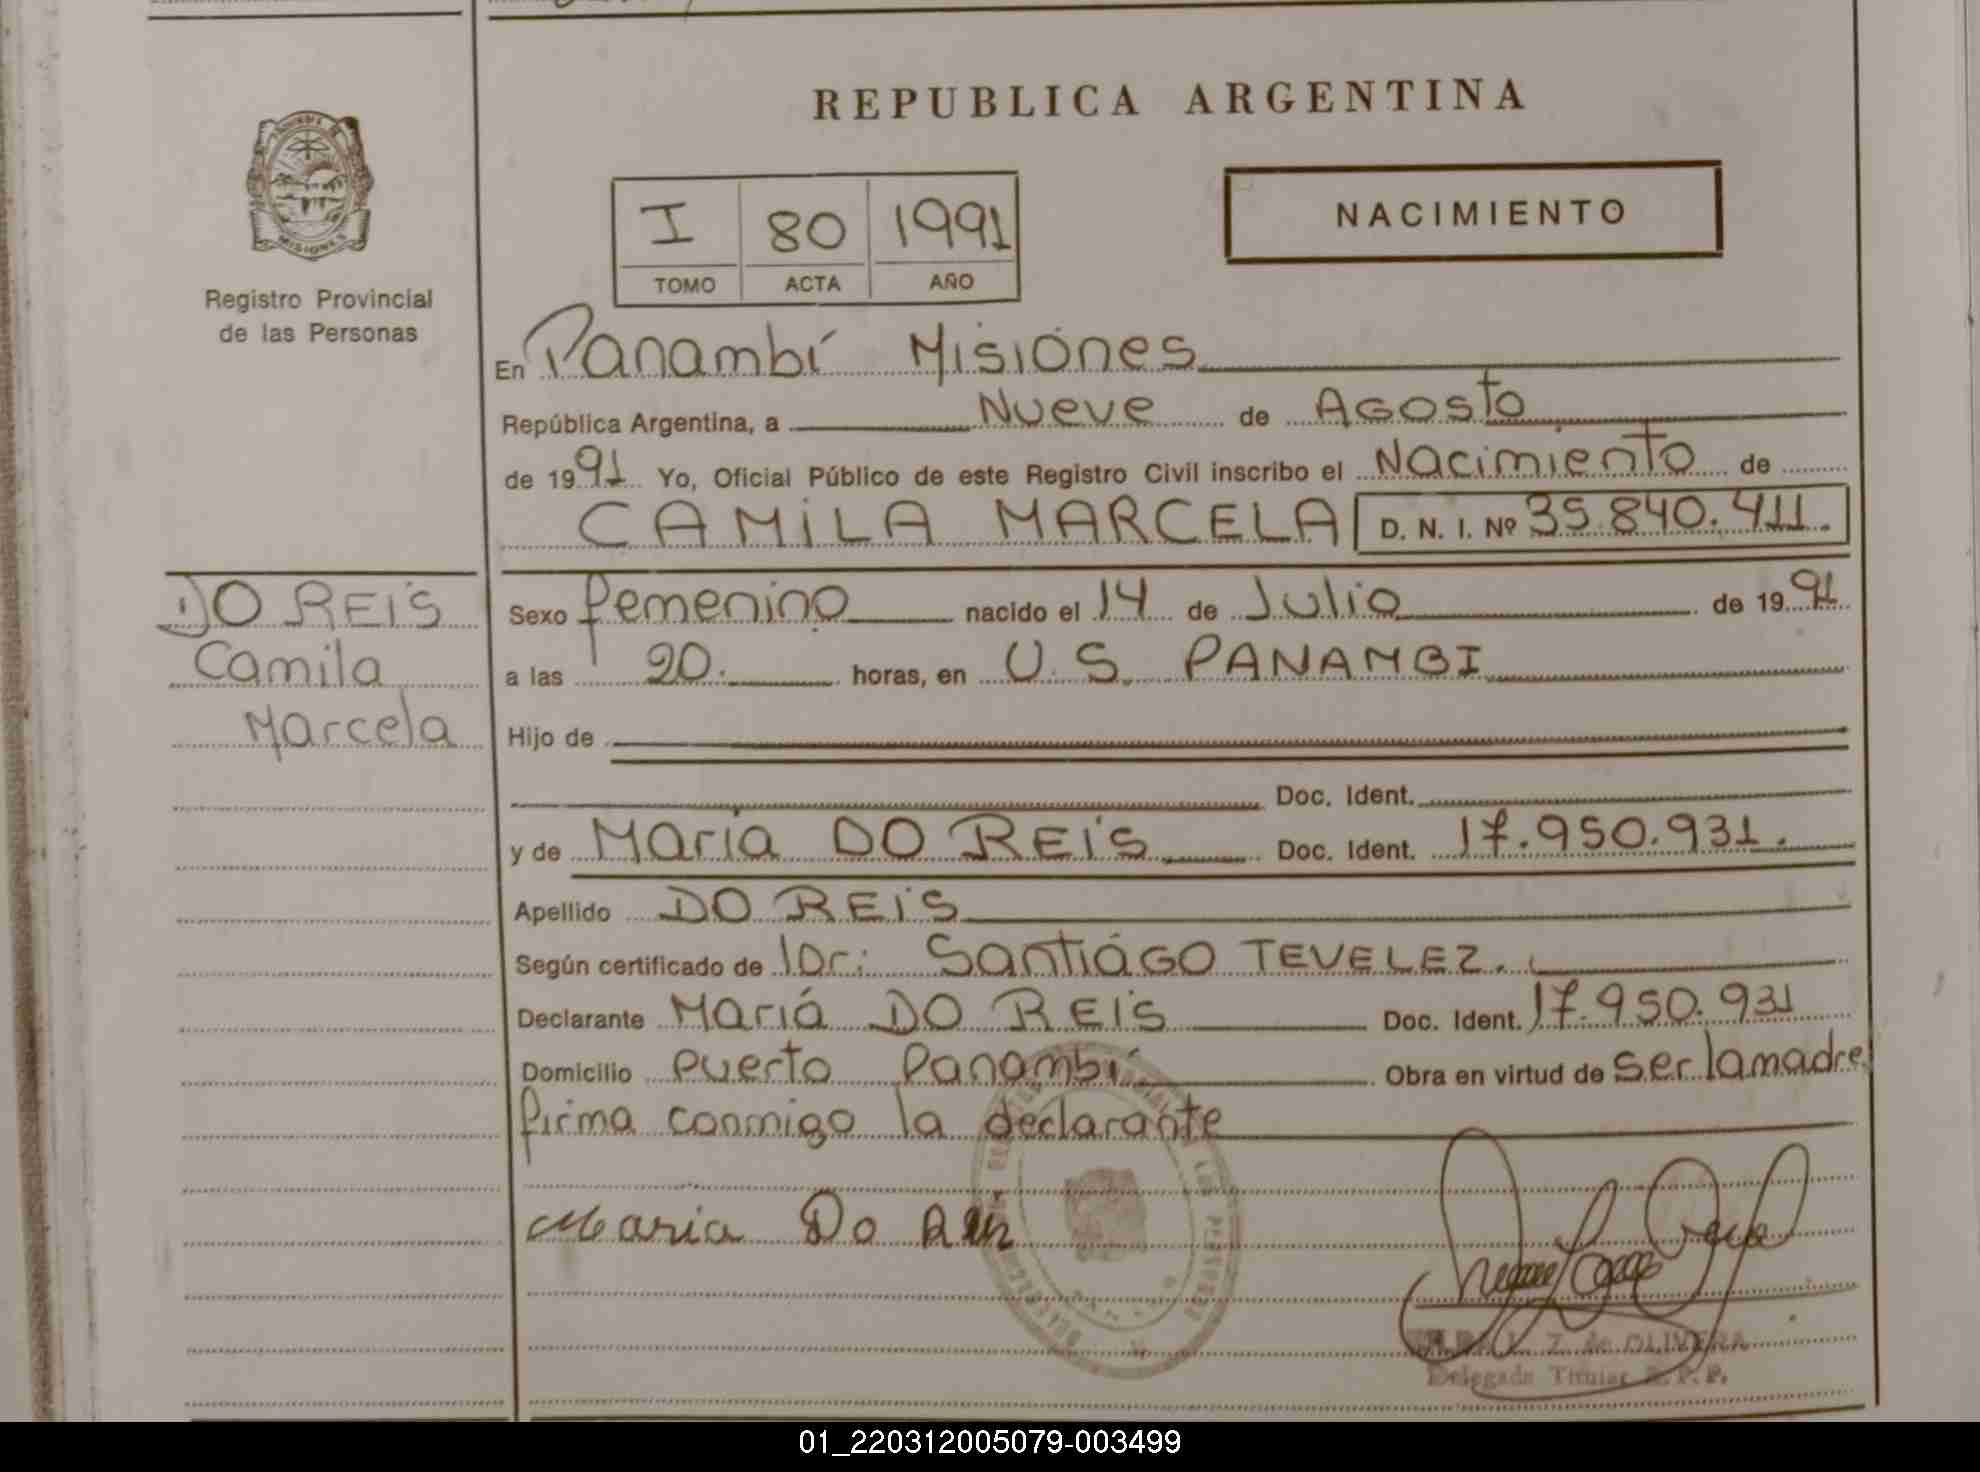 REPUBLICA ARGENTINA
MISIONES
Registro Provincial
de las Personas
I 80 1991
TOMO ACTA AÑO
NACIMIENTO
En Panambí Misiones
República Argentina, a Nueve de Agosto
de 1991 Yo, Oficial Público de este Registro Civil inscribo el Nacimiento de
CAMILA MARCELA D. N. I. Nº 35.840.411.
DO REIS
Camila
Marcela
Sexo femenino nacido el 14 de Julio de 1991
a las 20. horas, en U.S. PANAMBI
Hijo de
Doc. Ident.
y de María DO REIS Doc. Ident. 17.950.931.
Apellido DO REIS
Según certificado de Dr: Santiago TEVELEZ.
Declarante María DO REIS Doc. Ident. 17.950.931
Domicilio Puerto Panambí Obra en virtud de ser la madre
firma conmigo la declarante
Maria Do Reis
Z. de OLIVERA
Delegada Titular R.P.P.
01_220312005079-003499